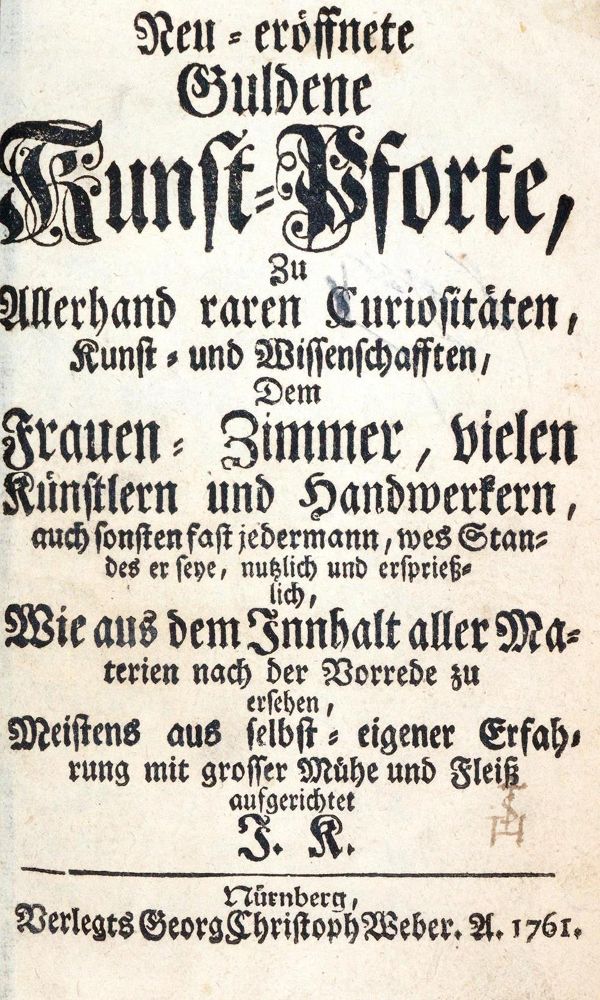 Neu-eröffnete
Guldene
Kunst-Pforte,
Zu
Allerhand raren Curiositäten,
Kunst- und Wissenschafften,
Dem
Frauen-Zimmer, vielen
Künstlern und Handwerkern,
auch sonsten fast jedermann, wes Stan-
des er seye, nutzlich und ersprieß-
lich,
Wie aus dem Innhalt aller Ma-
terien nach der Vorrede zu
ersehen,
Meistens aus selbst-eigener Erfah-
rung mit grosser Mühe und Fleiß
aufgerichtet
J. K.
Nürnberg,
Verlegts Georg Christoph Weber. A. 1761.